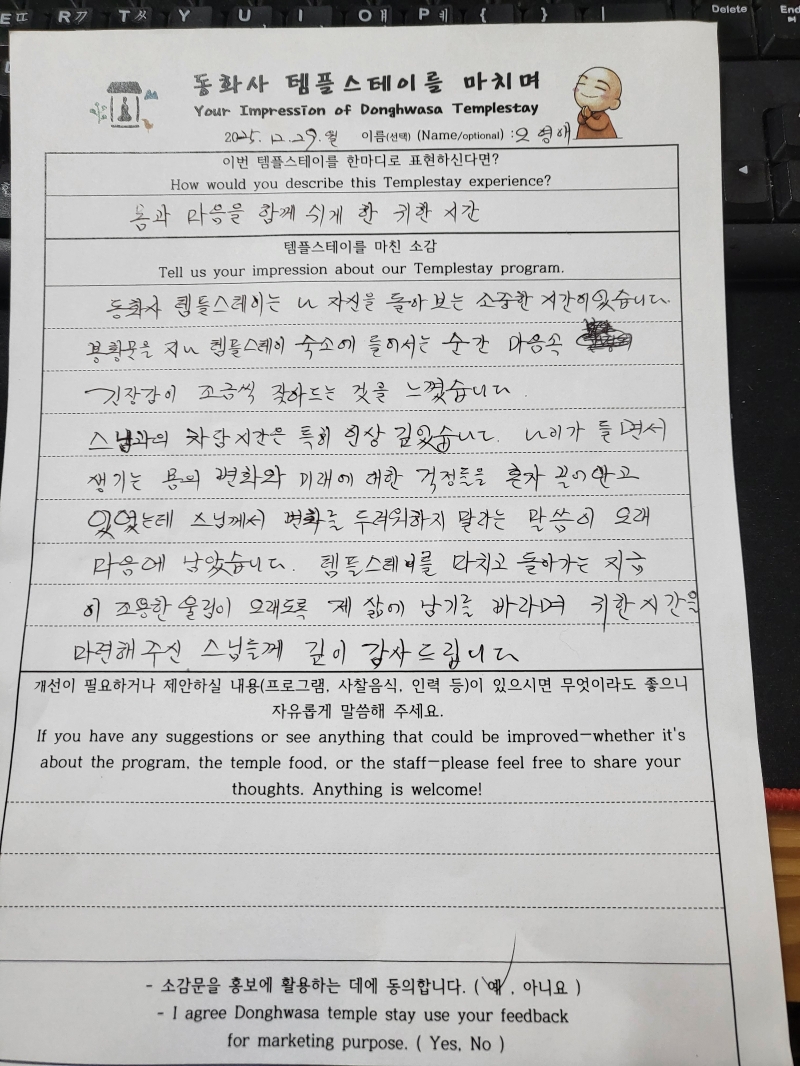 E ㄸ R ㄲ T ㅆ Y U I O ㅒ P ㅖ { } | Delete End
동화사 템플스테이를 마치며
Your Impression of Donghwasa Templestay
2025. 12. 29. 월 이름(선택) (Name/optional) : 오영애
이번 템플스테이를 한마디로 표현하신다면?
How would you describe this Templestay experience?
몸과 마음을 함께 쉬게 한 귀한 시간
템플스테이를 마친 소감
Tell us your impression about our Templestay program.
동화사 템플스테이는 나 자신을 돌아보는 소중한 시간이었습니다.
봉황문을 지나 템플스테이 숙소에 들어서는 순간 마음속
긴장감이 조금씩 잦아드는 것을 느꼈습니다.
스님과의 차담시간은 특히 인상 깊었습니다. 나이가 들면서
생기는 몸의 변화와 미래에 대한 걱정들을 혼자 끌어안고
있었는데 스님께서 변화를 두려워하지 말라는 말씀이 오래
마음에 남았습니다. 템플스테이를 마치고 돌아가는 지금
이 조용한 울림이 오래도록 제 삶에 남기를 바라며 귀한 시간을
마련해 주신 스님들께 깊이 감사드립니다
개선이 필요하거나 제안하실 내용(프로그램, 사찰음식, 인력 등)이 있으시면 무엇이라도 좋으니
자유롭게 말씀해 주세요.
If you have any suggestions or see anything that could be improved—whether it's
about the program, the temple food, or the staff—please feel free to share your
thoughts. Anything is welcome!
- 소감문을 홍보에 활용하는 데에 동의합니다. ( 예 , 아니요 )
- I agree Donghwasa temple stay use your feedback
for marketing purpose. ( Yes, No )